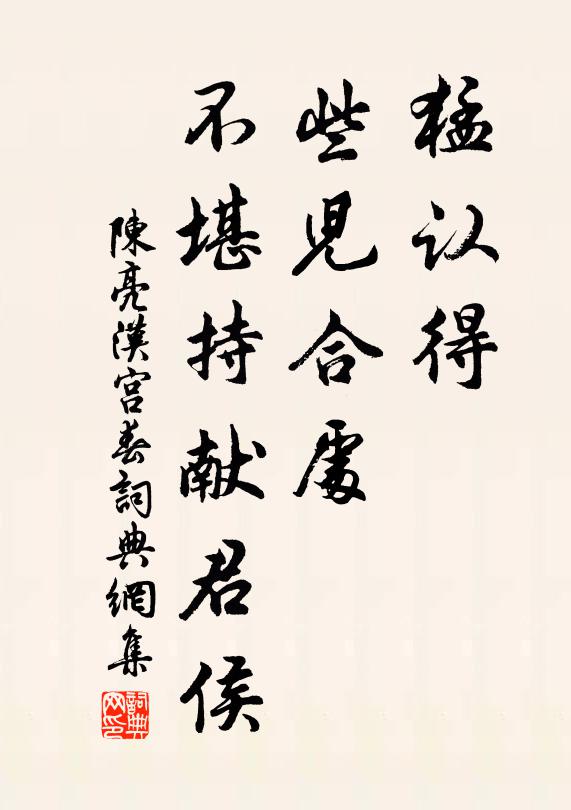 猛认得
些兒合處
不堪持献君侯
陳亮漢宮春詞典網集
詞典网印